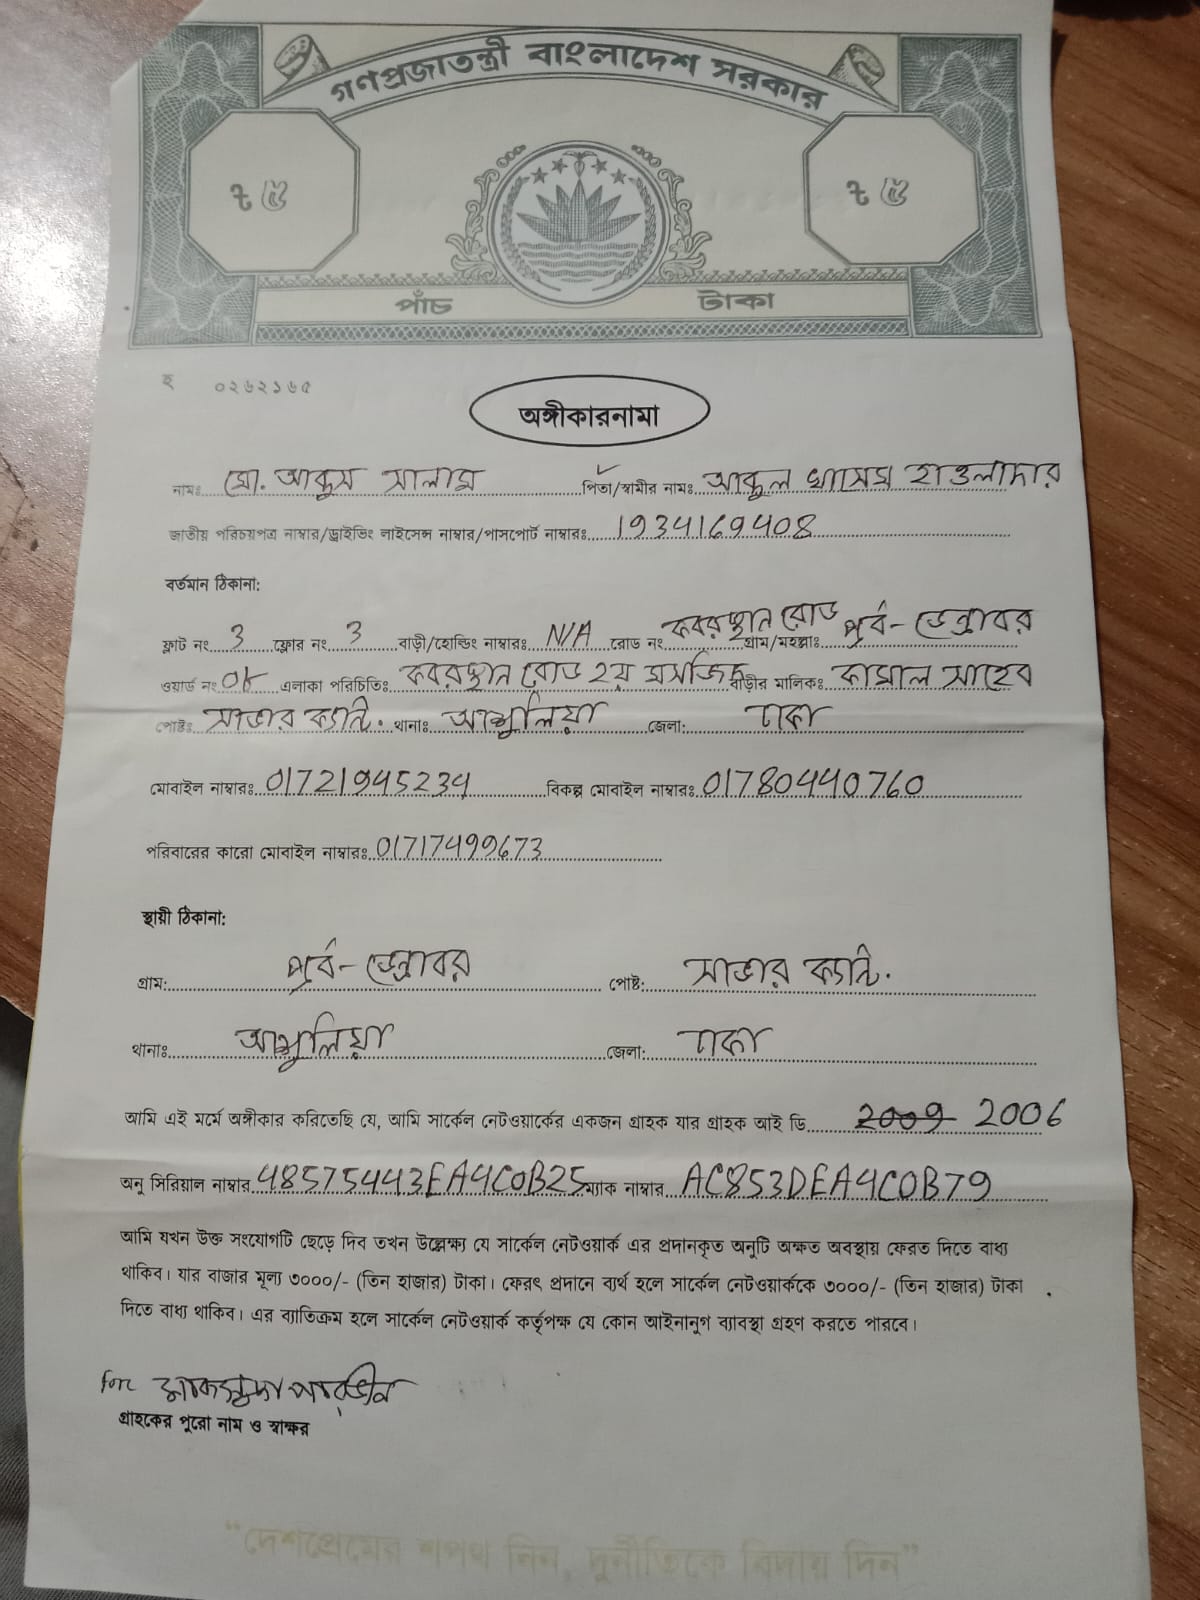 গণপ্রজাতন্ত্রী বাংলাদেশ সরকার
৳ ৫ ৳ ৫
পাঁচ টাকা
হ ০২৬২১৬৫
অঙ্গীকারনামা
নামঃ মো. আব্দুস সালাম পিতা/স্বামীর নামঃ আব্দুল খাসেম হাওলাদার
জাতীয় পরিচয়পত্র নাম্বার/ড্রাইভিং লাইসেন্স নাম্বার/পাসপোর্ট নাম্বারঃ 1934169408
বর্তমান ঠিকানা:
ফ্লাট নং 3 ফ্লোর নং 3 বাড়ী/হোল্ডিং নাম্বারঃ N/A রোড নং কবরস্থান রোড গ্রাম/মহল্লাঃ পূর্ব-ডেন্ডাবর
ওয়ার্ড নং এলাকা পরিচিতিঃ কবরস্থান রোড ২য় মসজিদ বাড়ীর মালিকঃ কামাল সাহেব
পোষ্টঃ সাভার ক্যান্ট. থানাঃ আশুলিয়া জেলা: ঢাকা
মোবাইল নাম্বারঃ 01721945234 বিকল্প মোবাইল নাম্বারঃ 01780440760
পরিবারের কারো মোবাইল নাম্বারঃ 01717499673
স্থায়ী ঠিকানা:
গ্রাম: পূর্ব-ডেন্ডাবর পোষ্ট: সাভার ক্যান্ট.
থানাঃ আশুলিয়া জেলা: ঢাকা
আমি এই মর্মে অঙ্গীকার করিতেছি যে, আমি সার্কেল নেটওয়ার্কের একজন গ্রাহক যার গ্রাহক আই ডি 2009 2006
অনু সিরিয়াল নাম্বার 48575443EA4C0B25 ম্যাক নাম্বার AC853DEA4C0B79
আমি যখন উক্ত সংযোগটি ছেড়ে দিব তখন উল্লেক্ষ্য যে সার্কেল নেটওয়ার্ক এর প্রদানকৃত অনুটি অক্ষত অবস্থায় ফেরত দিতে বাধ্য
থাকিব। যার বাজার মূল্য ৩০০০/- (তিন হাজার) টাকা। ফেরৎ প্রদানে ব্যর্থ হলে সার্কেল নেটওয়ার্ককে ৩০০০/- (তিন হাজার) টাকা
দিতে বাধ্য থাকিব। এর ব্যাতিক্রম হলে সার্কেল নেটওয়ার্ক কর্তৃপক্ষ যে কোন আইনানুগ ব্যাবস্থা গ্রহণ করতে পারবে।
For মাকসুদা পারভীন
গ্রাহকের পুরো নাম ও স্বাক্ষর
“দেশপ্রেমের শপথ নিন, দুর্নীতিকে বিদায় দিন”